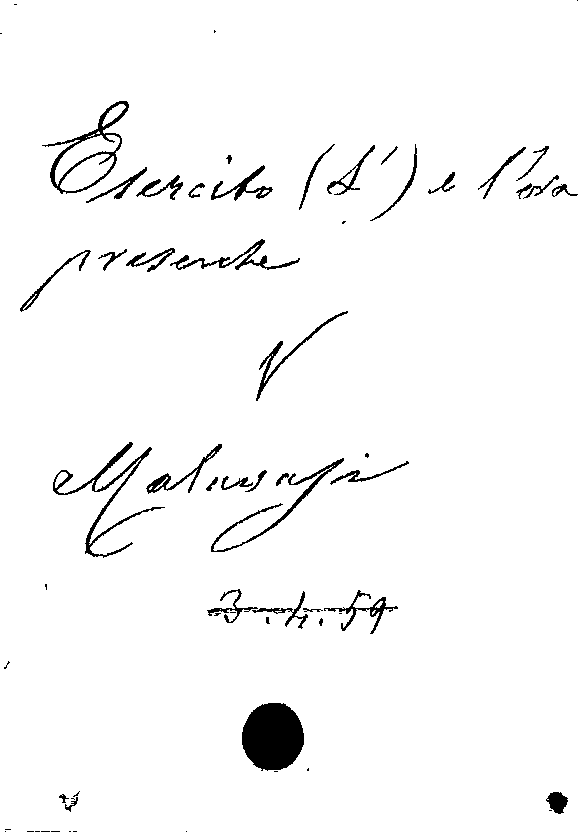 Esercito (L') e l'ora
presente
V
Malusasi
3.4.59